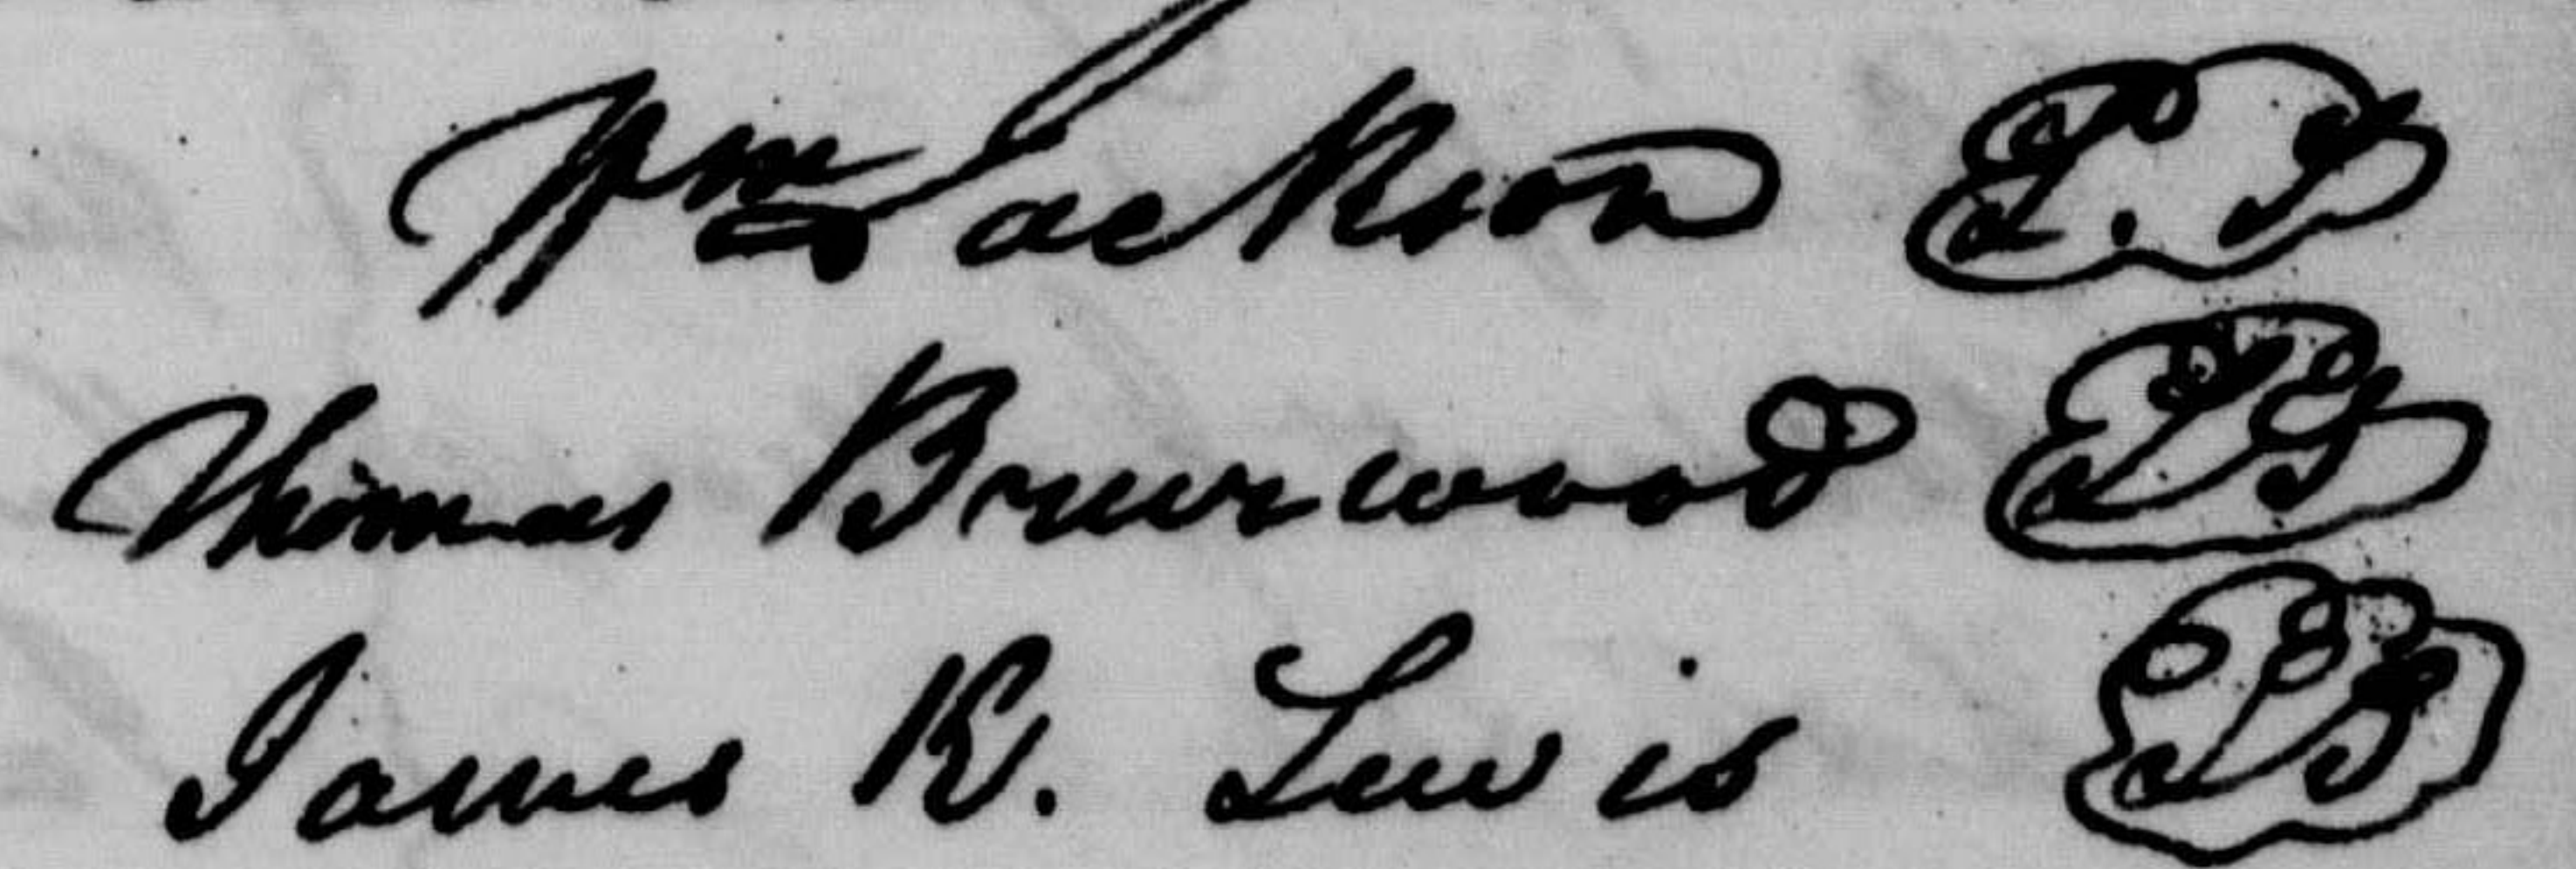 Wm Jackson L.S.
Thomas Brurwood L.S.
James R. Lewis L.S.